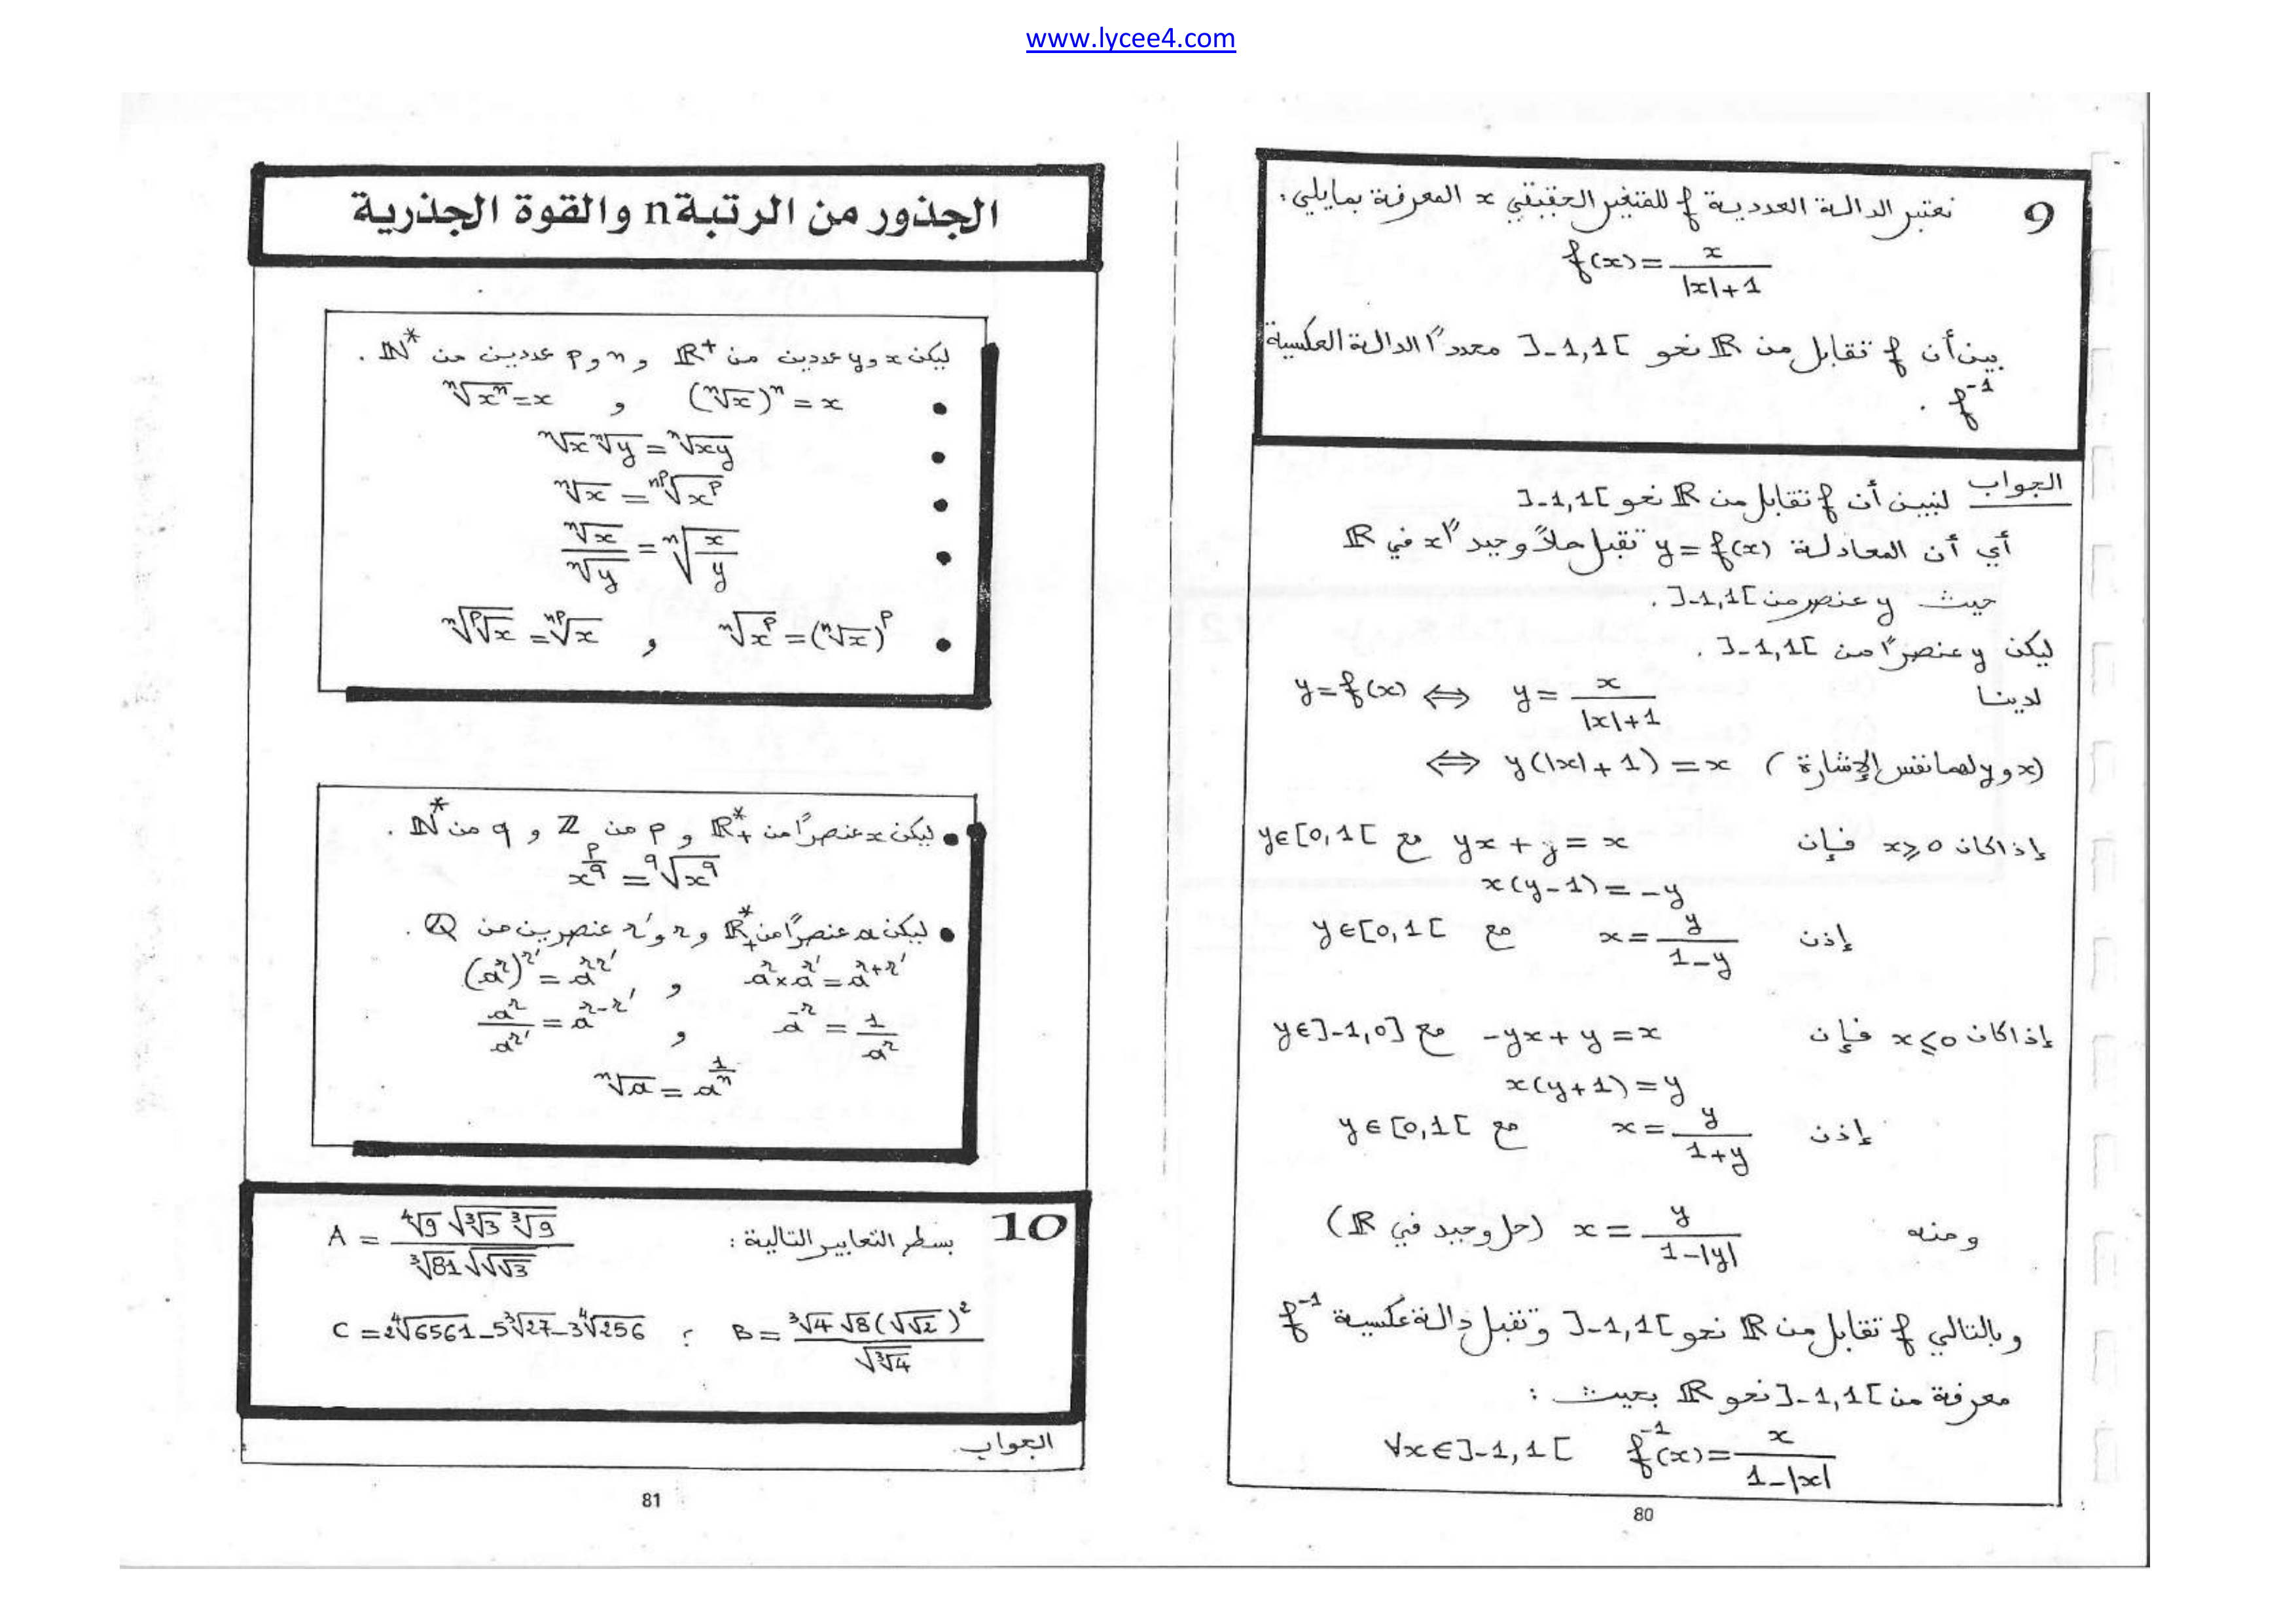 www.lycee4.com
9 نعتبر الدالة العددية f للمتغير الحقيقي x المعرفة بمايلي:
f(x) = x / (|x|+1)
بين أن f تقابل من ℝ نحو ]-1,1[ محدداً الدالة العكسية
f⁻¹ .
الجواب لنبين أن f تقابل من ℝ نحو ]-1,1[
أي أن المعادلة y = f(x) تقبل حلاً وحيداً x في ℝ
حيث y عنصر من ]-1,1[ .
ليكن y عنصراً من ]-1,1[ .
لدينا y = f(x) ⇔ y = x / (|x|+1)
⇔ y(|x|+1) = x (x و y لهما نفس الإشارة)
إذا كان x ⩾ 0 فإن yx + y = x مع y∈[0,1[
x(y-1) = -y
إذن x = y / (1-y) مع y∈[0,1[
إذا كان x ⩽ 0 فإن -yx + y = x مع y∈]-1,0]
x(y+1) = y
إذن x = y / (1+y) مع y∈[0,1[
ومنه x = y / (1-|y|) (حل وحيد في ℝ)
وبالتالي f تقابل من ℝ نحو ]-1,1[ وتقبل دالة عكسية f⁻¹
معرفة من ]-1,1[ نحو ℝ بحيث :
∀x∈]-1,1[ f⁻¹(x) = x / (1-|x|)
80
الجذور من الرتبة n والقوة الجذرية
ليكن x و y عددين من ℝ⁺ و n و p عددين من ℕ* .
• (ⁿ√x)ⁿ = x و ⁿ√(xⁿ) = x
• ⁿ√x ⁿ√y = ⁿ√(xy)
• ⁿ√x = ⁿᵖ√(xᵖ)
• ⁿ√x / ⁿ√y = ⁿ√(x/y)
• ⁿ√(xᵖ) = (ⁿ√x)ᵖ و ⁿ√(ᵖ√x) = ⁿᵖ√x
• ليكن x عنصراً من ℝ*₊ و p من ℤ و q من ℕ* .
x^(p/q) = q√(x^q)
• ليكن a عنصراً من ℝ*₊ و r و r' عنصرين من ℚ .
a^r × a^r' = a^(r+r') و (a^r)^r' = a^(rr')
a^(-r) = 1 / a^r و a^r / a^r' = a^(r-r')
ⁿ√a = a^(1/n)
10 بسط التعابير التالية : A = (⁴√9 √(³√3 ³√9)) / (³√81 √(√(√3)))
B = (³√4 √8 (√(√2))²) / √(³√4) ; C = 2⁴√6561 - 5³√27 - 3⁴√256
الجواب
81